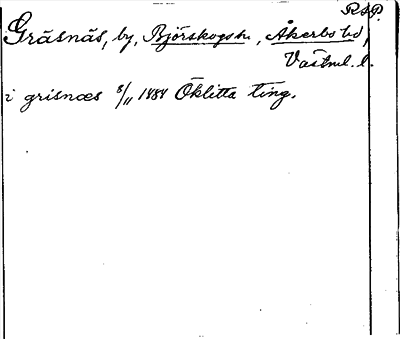 RAP.
Gräsnäs, by, Björskogs sn, Åkerbo hd,
Västml. l.
i grisnæs 8/11 1484 Öklitta ting.